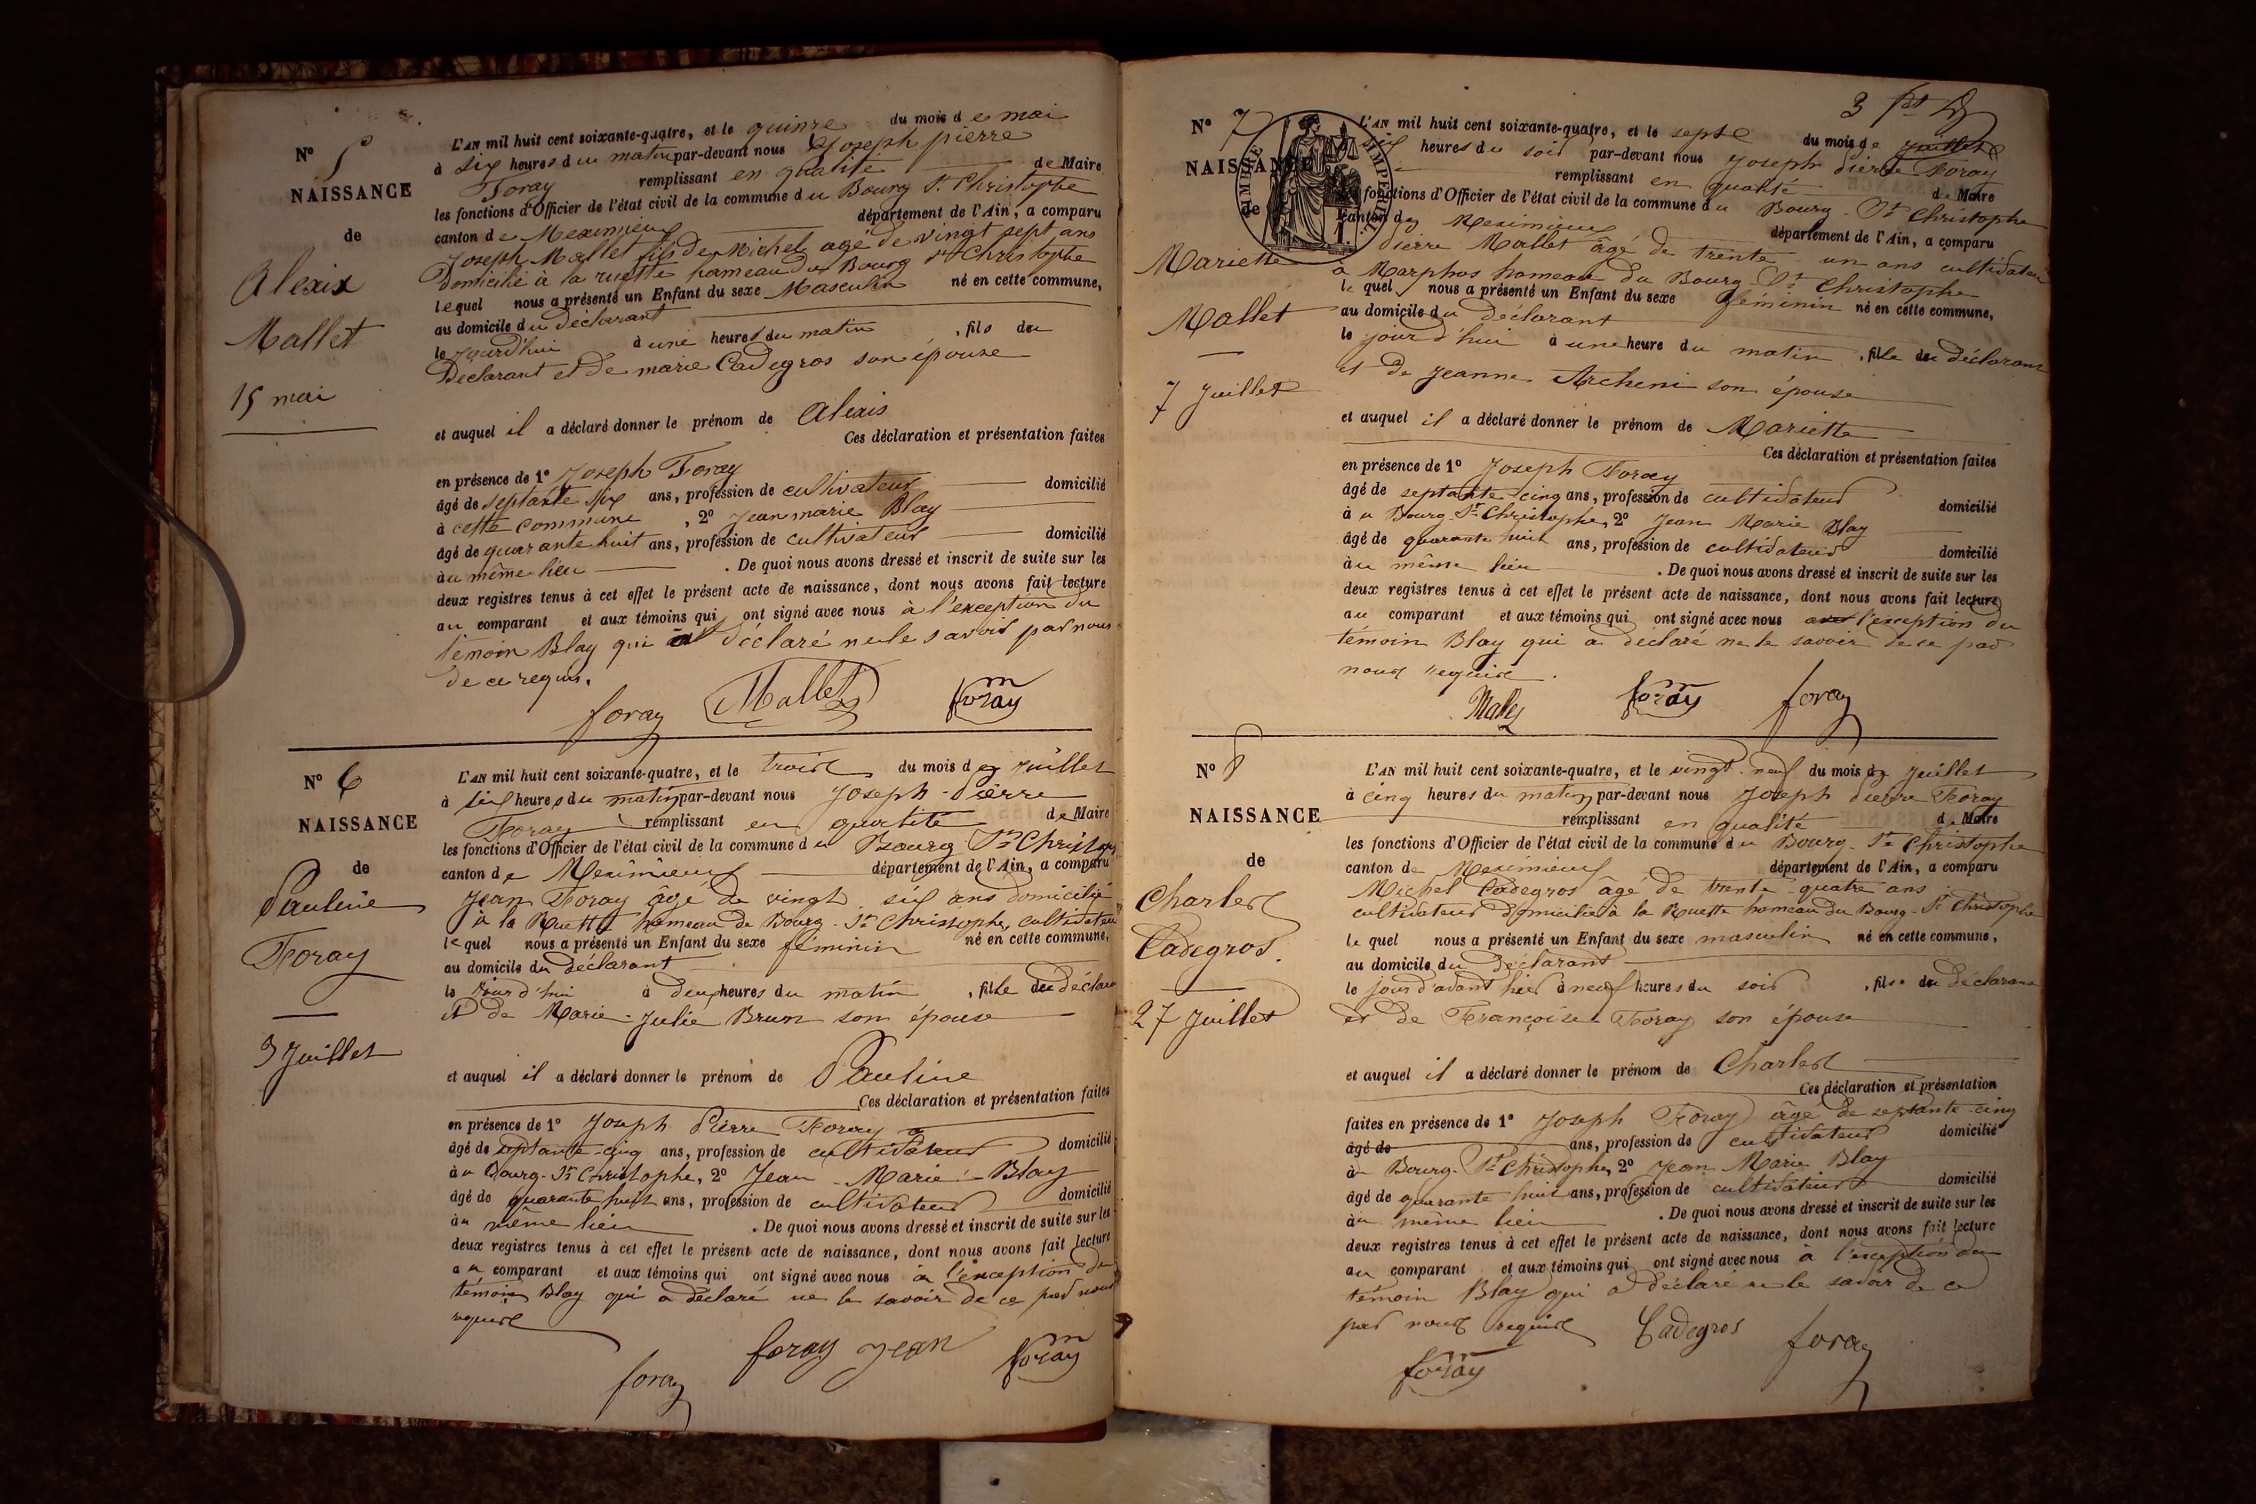 N° 5
NAISSANCE
de
Alexis
Mallet
15 mai
L'AN mil huit cent soixante-quatre, et le quinze du mois de mai
à six heures du matin par-devant nous Joseph pierre
Foray remplissant en qualité de Maire
les fonctions d'Officier de l'état civil de la commune du Bourg St. Christophe
canton de Meximieux département de l'Ain, a comparu
Joseph Mallet fils de Michel agé de vingt sept ans
Domicilié à la ruette hameau du Bourg St Christophe
lequel nous a présenté un Enfant du sexe Masculin né en cette commune,
au domicile du déclarant
le jourd'hui à une heures du matin, fils du
Déclarant et de marie Cadegros son épouse
et auquel il a déclaré donner le prénom de Alexis
Ces déclaration et présentation faites
en présence de 1° Joseph Foray
âgé de septante six ans, profession de cultivateur domicilié
à cette commune, 2° Jean marie Blay
âgé de quarante huit ans, profession de cultivateur domicilié
au même lieu. De quoi nous avons dressé et inscrit de suite sur les
deux registres tenus à cet effet le présent acte de naissance, dont nous avons fait lecture
au comparant et aux témoins qui ont signé avec nous à l'exception du
témoin Blay qui a déclaré ne le savoir par nous
de ce requis.
foray Mallet foray
N° 6
NAISSANCE
de
Pauline
Foray
3 Juillet
L'AN mil huit cent soixante-quatre, et le trois du mois de Juillet
à six heures du matin par-devant nous Joseph-Pierre
Foray remplissant en qualité de Maire
les fonctions d'Officier de l'état civil de la commune du Bourg St Christophe
canton de Meximieux département de l'Ain, a comparu
Jean Foray âgé de vingt-six ans domicilié
à la Ruette hameau de Bourg-St Christophe, cultivateur
lequel nous a présenté un Enfant du sexe féminin né en cette commune,
au domicile du déclarant
le jour d'hui à deux heures du matin, fille du déclarant
et de Marie-Julie Brun son épouse
et auquel il a déclaré donner le prénom de Pauline
Ces déclaration et présentation faites
en présence de 1° Joseph Pierre Foray
âgé de septante-cinq ans, profession de cultivateur domicilié
au Bourg-St Christophe, 2° Jean-Marie Blay
âgé de quarante huit ans, profession de cultivateur domicilié
au même lieu. De quoi nous avons dressé et inscrit de suite sur les
deux registres tenus à cet effet le présent acte de naissance, dont nous avons fait lecture
au comparant et aux témoins qui ont signé avec nous à l'exception du
témoin Blay qui a déclaré ne le savoir de ce par nous
requis
foray foray Jean foray
3
N° 7
NAISSANCE
de
Mariette
Mallet
7 Juillet
TIMBRE IMPÉRIAL
L'AN mil huit cent soixante-quatre, et le sept du mois de Juillet
six heures du soir par-devant nous Joseph Pierre Foray
remplissant en qualité de Maire
les fonctions d'Officier de l'état civil de la commune du Bourg-St Christophe
canton de Meximieux département de l'Ain, a comparu
Pierre Mallet âgé de trente-un ans cultivateur
à Marphos hameau du Bourg-St Christophe
le quel nous a présenté un Enfant du sexe féminin né en cette commune,
au domicile du déclarant
le jour d'hui à une heure du matin, fille du déclarant
et de Jeanne Archeni son épouse
et auquel il a déclaré donner le prénom de Mariette
Ces déclaration et présentation faites
en présence de 1° Joseph Foray
âgé de septante-cinq ans, profession de cultivateur domicilié
au Bourg-St Christophe, 2° Jean Marie Blay
âgé de quarante huit ans, profession de cultivateur domicilié
au même lieu. De quoi nous avons dressé et inscrit de suite sur les
deux registres tenus à cet effet le présent acte de naissance, dont nous avons fait lecture
au comparant et aux témoins qui ont signé avec nous l'exception du
témoin Blay qui a déclaré ne le savoir de ce par
nous requis.
foray foray
N° 8
NAISSANCE
de
Charles
Cadegros.
27 Juillet
L'AN mil huit cent soixante-quatre, et le vingt-neuf du mois de Juillet
à cinq heures du matin par-devant nous Joseph Pierre Foray
remplissant en qualité de Maire
les fonctions d'Officier de l'état civil de la commune du Bourg-St Christophe
canton de Meximieux département de l'Ain, a comparu
Michel Cadegros âgé de trente-quatre ans
cultivateur domicilié à la Ruette hameau du Bourg-St Christophe
le quel nous a présenté un Enfant du sexe masculin né en cette commune,
au domicile du déclarant
le jour d'avant hier à neuf heures du soir, fils du déclarant
et de Françoise Foray son épouse
et auquel il a déclaré donner le prénom de Charles
Ces déclaration et présentation
faites en présence de 1° Joseph Foray âgé de septante-cinq
âgé de ans, profession de cultivateur domicilié
à Bourg-St Christophe, 2° Jean Marie Blay
âgé de quarante huit ans, profession de cultivateur domicilié
au même lieu. De quoi nous avons dressé et inscrit de suite sur les
deux registres tenus à cet effet le présent acte de naissance, dont nous avons fait lecture
au comparant et aux témoins qui ont signé avec nous à l'exception du
témoin Blay qui a déclaré ne le savoir de ce
par nous requis Cadegros foray
foray